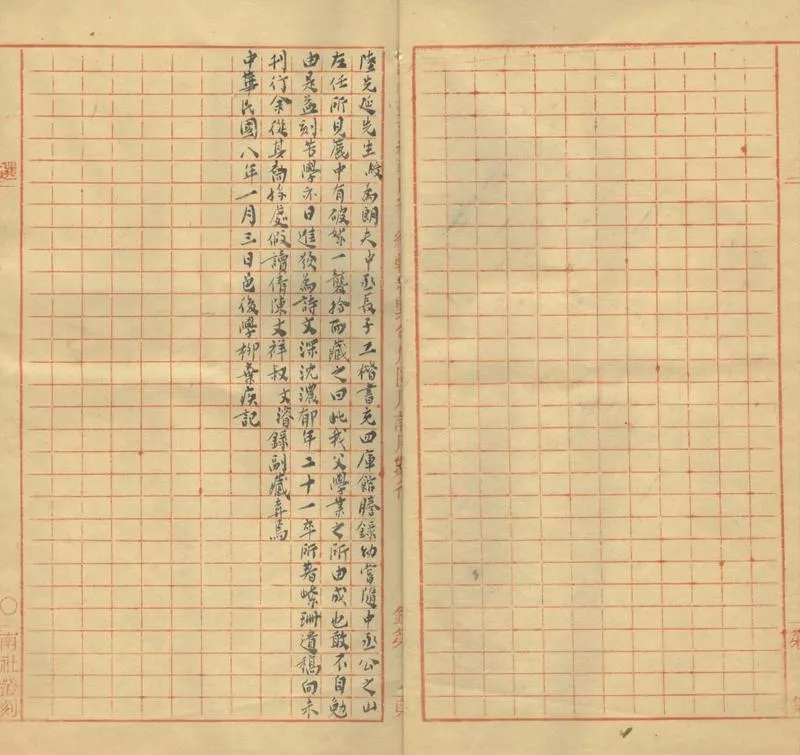 陸先延先生燦為朗夫中丞長子工楷書充四庫館謄錄幼嘗隨中丞公之山
左任所見麓中有破硯一襲拾而藏之曰此我父學業之所由成也敢不自勉
由是益刻苦學亦日進發為詩文深沈濃郁年二十一卒所著 珊遺稿向未
刊行余從其裔孫處假讀倩陳丈祥叔文濬錄副藏弆焉
中華民國八年一月三日邑後學柳棄疾記
選
南社叢刻